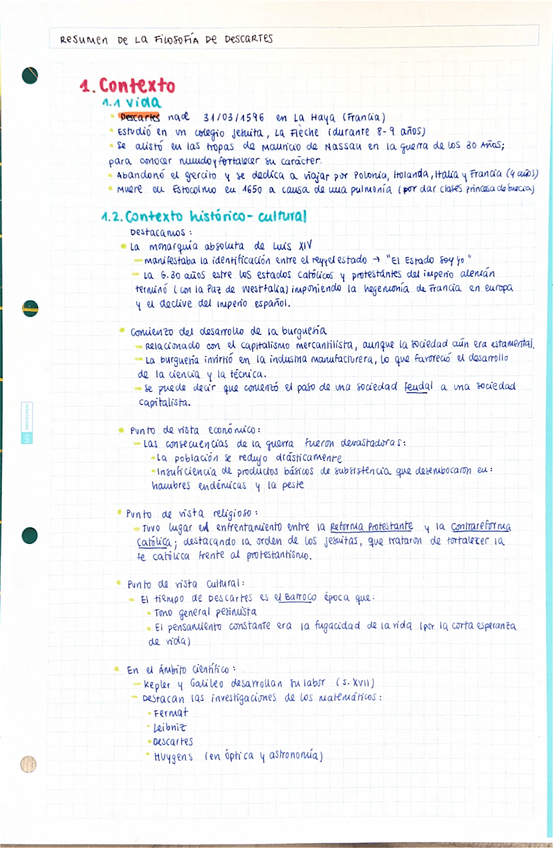 RESUMEN DE LA FILOSOFÍA DE DESCARTES
1. Contexto
1.1 Vida
Descartes nace 31/03/1596 en La Haya (Francia)
Estudió en un colegio jesuita, La Flèche (durante 8-9 años)
Se alistó en las tropas de Mauricio de Nassau en la guerra de los 30 Años;
para conocer mundo y fortalecer su carácter.
Abandonó el gercito y se dedica a viajar por Polonia, Holanda, Italia y Francia (9 años)
Muere en Estocolmo en 1650 a causa de una pulmonía (por dar clases princesa de Suecia)
1.2. Contexto histórico-cultural
Destacamos:
La monarquía absoluta de Luis XIV
– manifestaba la identificación entre el rey y el estado → "El Estado soy yo"
– La G.30 años entre los estados católicos y protestantes del imperio alemán
terminó (con la Paz de Westfalia) imponiendo la hegemonía de Francia en europa
y el declive del imperio español.
Comienzo del desarrollo de la burguería
– Relacionado con el capitalismo mercantilista, aunque la sociedad aún era estamental.
– La burguería invirtió en la industria manufacturera, lo que favoreció el desarrollo
de la ciencia y la técnica.
– Se puede decir que comenzó el paso de una sociedad feudal a una sociedad
capitalista.
Punto de vista económico:
– Las consecuencias de la guerra fueron devastadoras:
La población se redujo drásticamente
Insuficiencia de productos básicos de subsistencia que desembocaron en:
hambres endémicas y la peste
Punto de vista religioso:
– Tuvo lugar el enfrentamiento entre la Reforma Protestante y la Contrareforma
Católica; destacando la orden de los jesuitas, que trataron de fortalecer la
fe católica frente al protestantismo.
Punto de vista cultural:
– El tiempo de Descartes es el Barroco época que:
Tono general pesimista
El pensamiento constante era la fugacidad de la vida (por la corta esperanza
de vida)
En el ámbito científico:
– Kepler y Galileo desarrollan su labor (s. XVII)
– Destacan las investigaciones de los matemáticos:
Fermat
Leibniz
Descartes
Huygens (en óptica y astronomía)